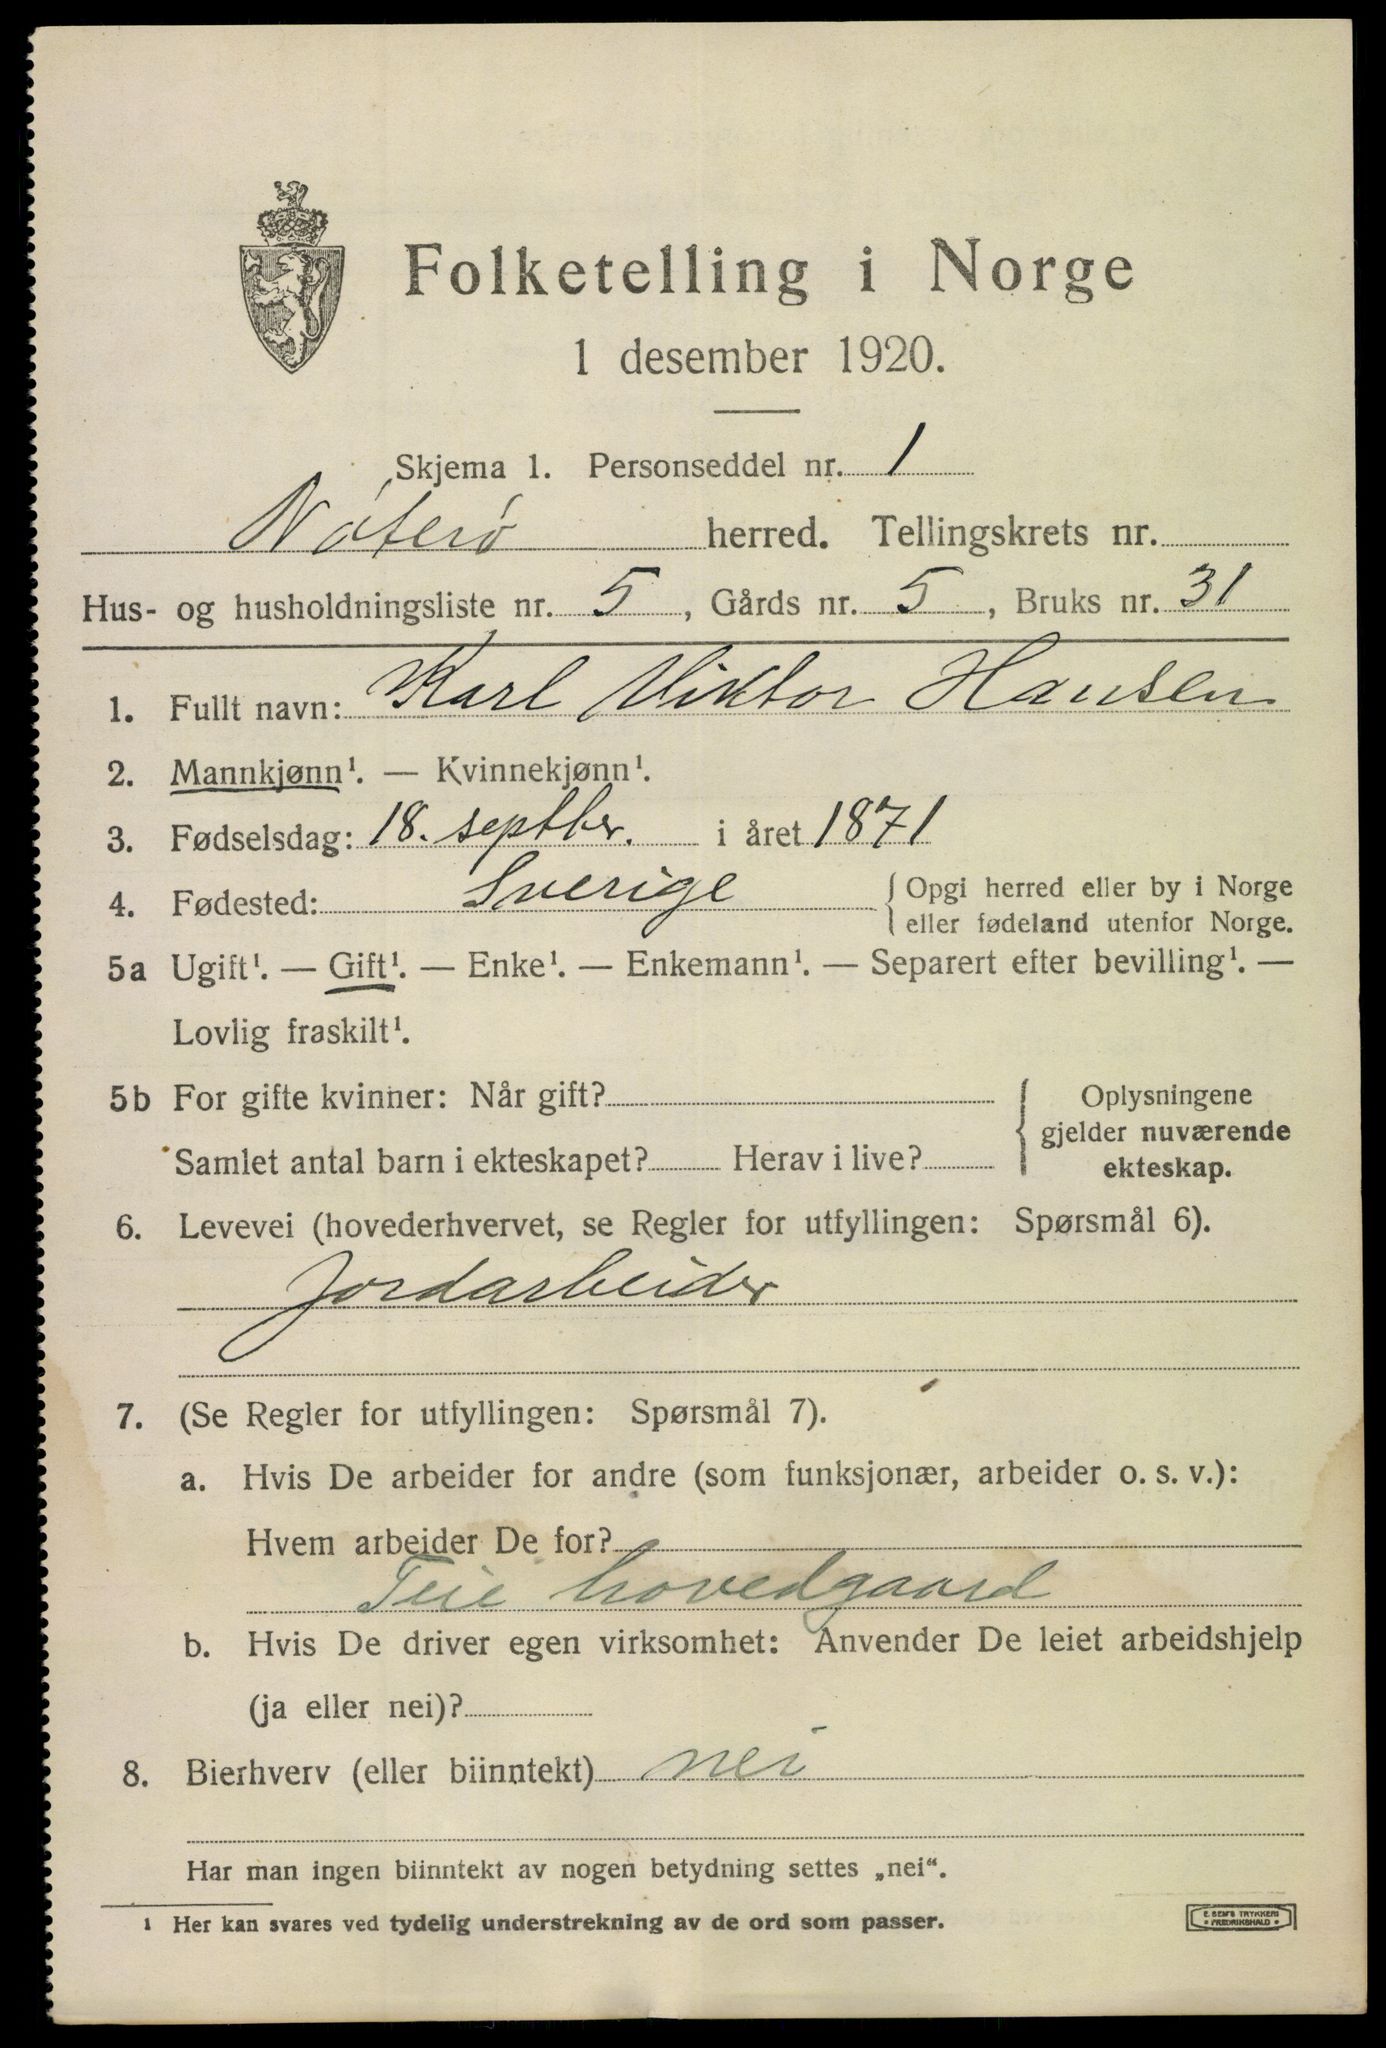 Folketelling i Norge
1 desember 1920.
Skjema 1. Personseddel nr. 1
Nøterø herred. Tellingskrets nr.
Hus- og husholdningsliste nr. 5, Gårds nr. 5, Bruks nr. 31
1. Fullt navn: Karl Viktor Hansen
2. Mannkjønn¹. — Kvinnekjønn¹.
3. Fødselsdag: 18. septber. i året 1871
4. Fødested: Sverige { Opgi herred eller by i Norge
eller fødeland utenfor Norge.
5a Ugift¹. — Gift¹. — Enke¹. — Enkemann¹. — Separert efter bevilling¹. —
Lovlig fraskilt¹.
5b For gifte kvinner: Når gift?
Samlet antal barn i ekteskapet? Herav i live?
Oplysningene
gjelder nuværende
ekteskap.
6. Levevei (hovederhvervet, se Regler for utfyllingen: Spørsmål 6).
Jordarbeider
7. (Se Regler for utfyllingen: Spørsmål 7).
a. Hvis De arbeider for andre (som funksjonær, arbeider o. s. v.):
Hvem arbeider De for?
Teie hovedgaard
b. Hvis De driver egen virksomhet: Anvender De leiet arbeidshjelp
(ja eller nei)?
8. Bierhverv (eller biinntekt) nei
Har man ingen biinntekt av nogen betydning settes „nei“.
¹ Her kan svares ved tydelig understrekning av de ord som passer.
E. SEM'S TRYKKERI
• FREDRIKSHALD •